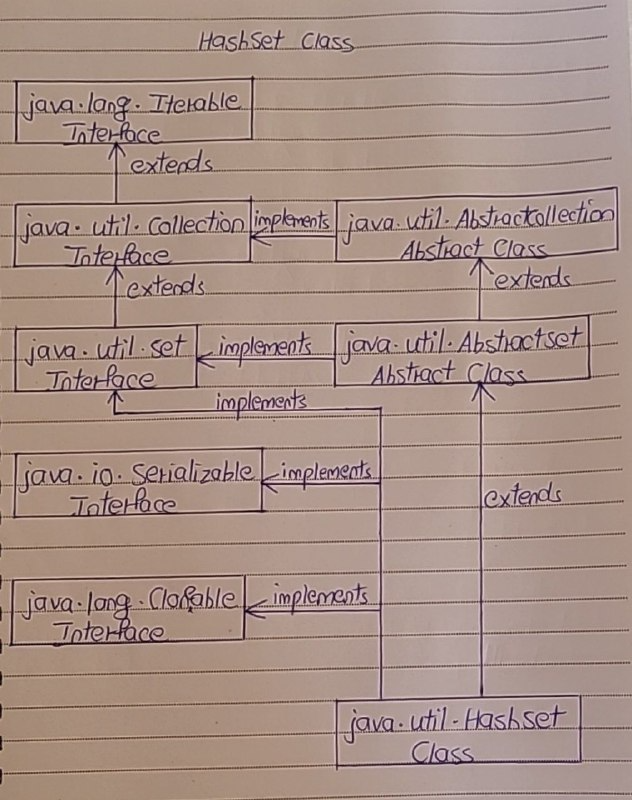 HashSet Class
java.lang.Iterable
Interface
extends
java.util.Collection
Interface
implements
java.util.Abstractcollection
Abstract Class
extends
extends
java.util.set
Interface
implements
java.util.Abstractset
Abstract Class
implements
java.io.Serializable
Interface
implements
extends
java.lang.Clonable
Interface
implements
java.util.Hashset
Class